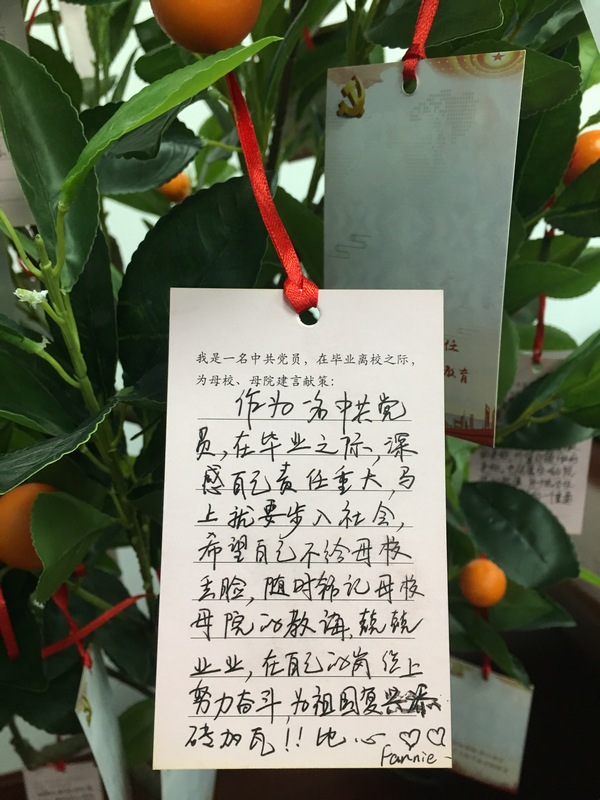 我是一名中共党员，在毕业离校之际，
为母校、母院建言献策：
作为一名中共党
员，在毕业之际，深
感自己责任重大，马
上就要步入社会，
希望自己不给母校
丢脸，随时铭记母校
母院的教诲，兢兢
业业，在自己的岗位上
努力奋斗，为祖国复兴添
砖加瓦！！比心♡♡
Fannie
任
教育